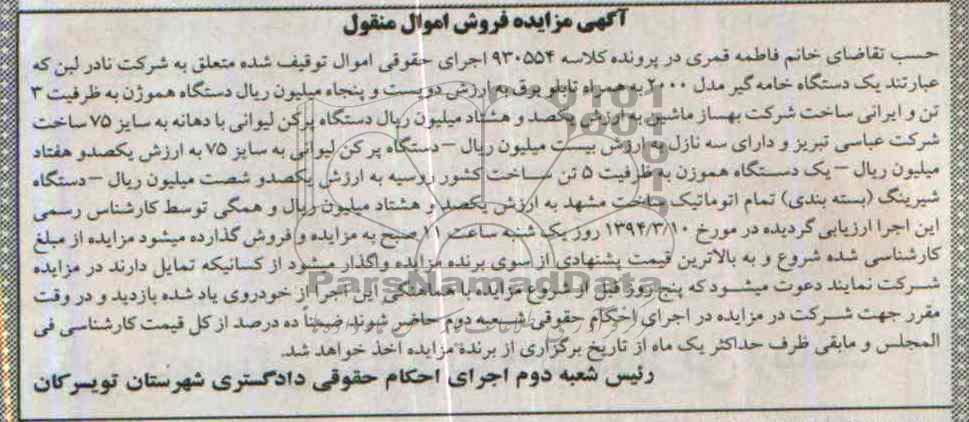 آگهی مزایده فروش اموال منقول
حسب تقاضای خانم فاطمه قمری در پرونده کلاسه ۹۳۰۵۵۴ اجرای حقوقی اموال توقیف شده متعلق به شرکت نادر لبن که
عبارتند یک دستگاه خامه گیر مدل ۲۰۰۰ به همراه تابلو برق به ارزش دویست و پنجاه میلیون ریال دستگاه هموژن به ظرفیت ۳
تن و ایرانی ساخت شرکت بهساز ماشین به ارزش یکصد و هشتاد میلیون ریال دستگاه پرکن لیوانی با دهانه به سایز ۷۵ ساخت
شرکت عباسی تبریز و دارای سه نازل به ارزش بیست میلیون ریال – دستگاه پر کن لیوانی به سایز ۷۵ به ارزش یکصدو هفتاد
میلیون ریال – یک دستگاه هموزن به ظرفیت ۵ تن ساخت کشور روسیه به ارزش یکصدو شصت میلیون ریال – دستگاه
شیرینگ (بسته بندی) تمام اتوماتیک ساخت مشهد به ارزش یکصد و هشتاد میلیون ریال و همگی توسط کارشناس رسمی
این اجرا ارزیابی گردیده در مورخ ۱۳۹۴/۳/۱۰ روز یک شنبه ساعت ۱۱ صبح به مزایده و فروش گذارده میشود مزایده از مبلغ
کارشناسی شده شروع و به بالاترین قیمت پشنهادی از سوی برنده مزایده واگذار میشود از کسانیکه تمایل دارند در مزایده
شرکت نمایند دعوت میشود که پنج روز قبل از شروع مزایده با هماهنگی این اجرا از خودروی یاد شده بازدید و در وقت
مقرر جهت شرکت در مزایده در اجرای احکام حقوقی شعبه دوم حاضر شوند ضمناً ده درصد از کل قیمت کارشناسی فی
المجلس و مابقی ظرف حداکثر یک ماه از تاریخ برگزاری از برنده مزایده اخذ خواهد شد.
رئیس شعبه دوم اجرای احکام حقوقی دادگستری شهرستان تویسرکان
ParsNamadData